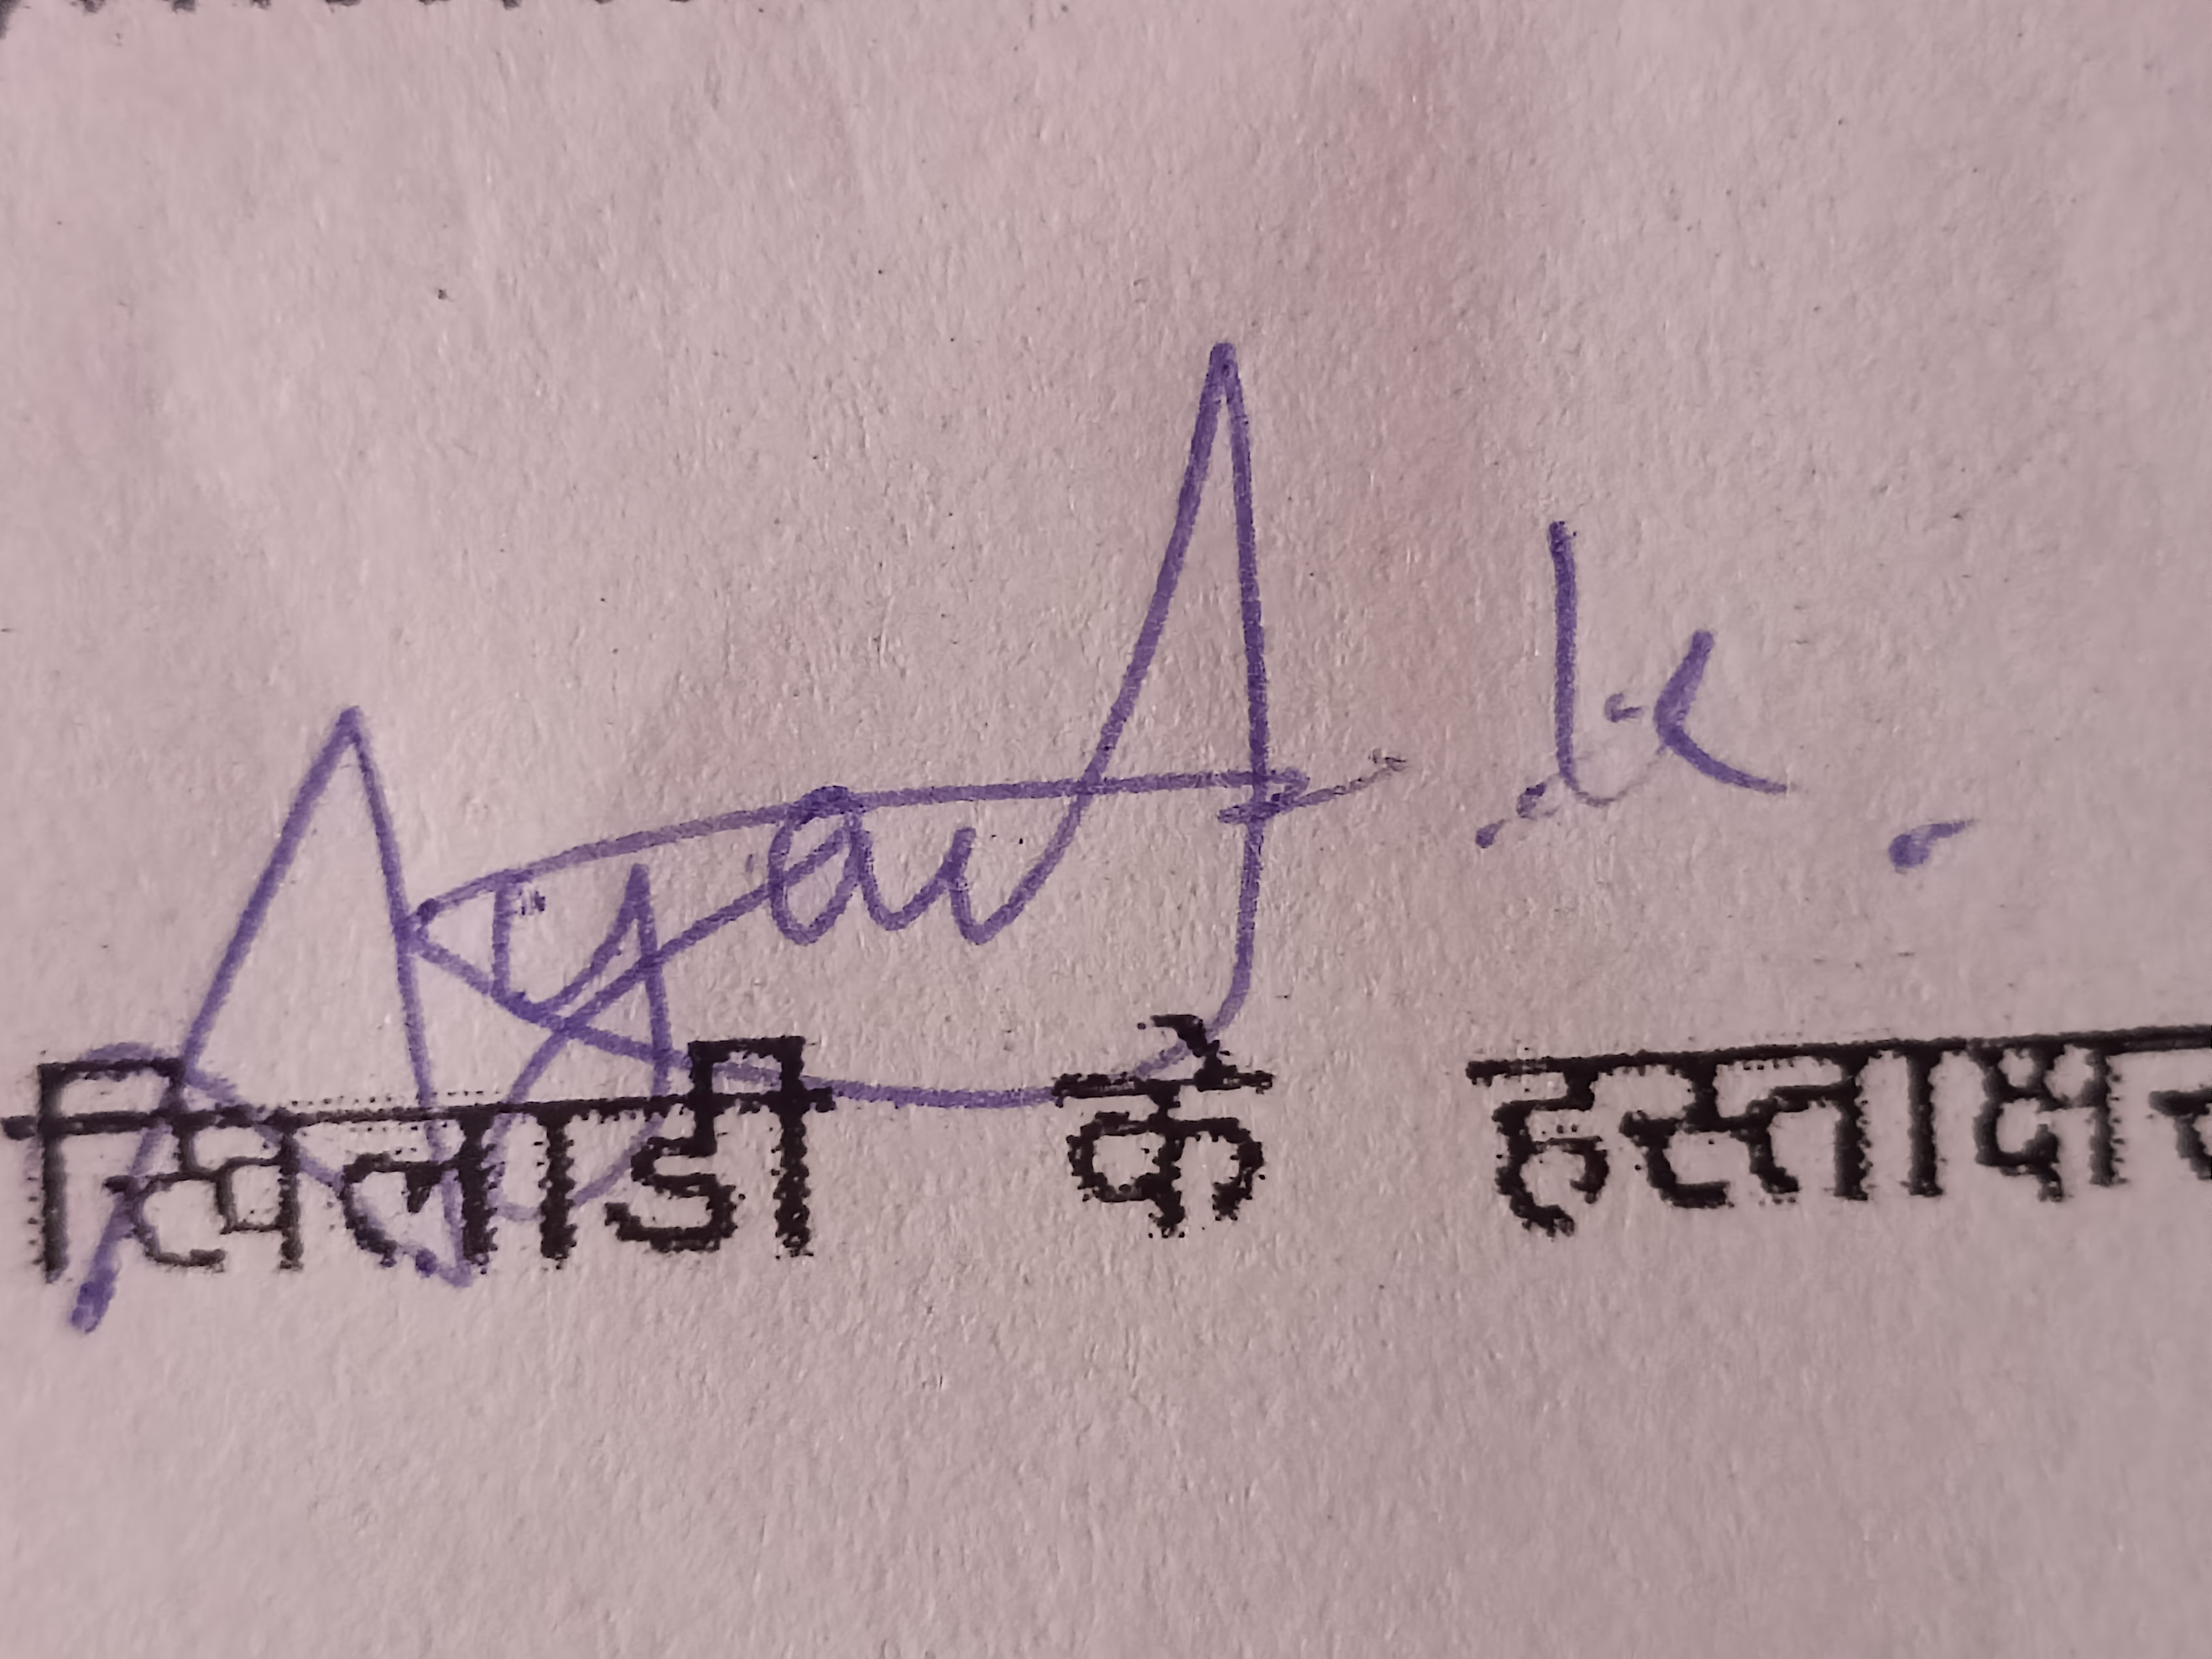 Ayant .k.
खिलाडी के हस्ताक्षर